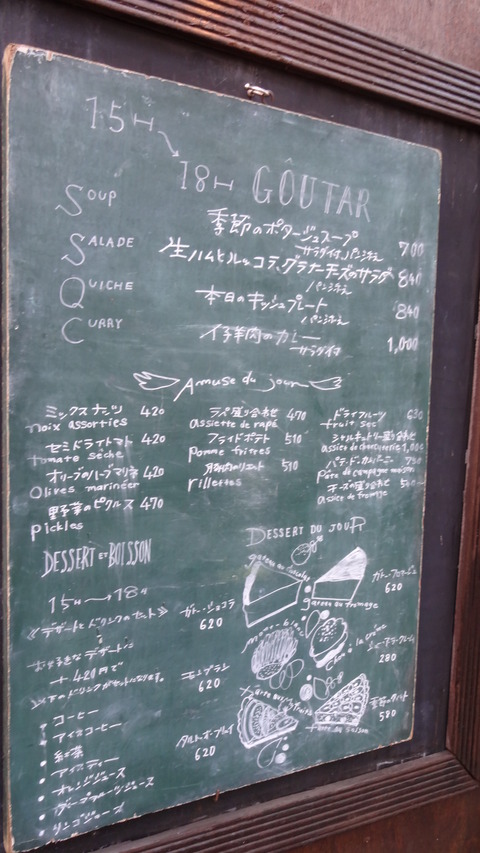 15H
18H GOÛTAR
SOUP
季節のポタージュスープ
サラダ付, パン添え 700
SALADE
生ハムとルッコラ、グラナチーズのサラダ 840
パン添え
QUICHE
本日のキッシュプレート 840
パン添え
CURRY
仔羊肉のカレー 1,000
サラダ付
Amuse du jour
ミックスナッツ 420
noix assorties
セミドライトマト 420
tomate séche
オリーブのハーブマリネ 420
Olives mariner
野菜のピクルス 470
pickles
ラペ盛り合わせ 470
assiette de rapé
フライドポテト 510
Pomme frites
豚肉のリエット 510
rillettes
ドライフルーツ 630
fruit sec
シャルキュトリー盛り合わせ
assiet de charcuterie 1,000
パテ・ド・カンパーニュ
pâte de campagne maison
チーズの盛り合わせ
assiet de fromage
DESSERT ET BOISSON
15H→18H
《デザートとドリンクのセット》
お好きなデザートに
+420円で
以下のドリンクがセットになります。
• コーヒー
• アイスコーヒー
• 紅茶
• アイスティー
• オレンジジュース
• グレープフルーツジュース
• リンゴジュース
DESSERT DU JOUR
gateau au chocolat
ガトーショコラ
620
gateau au fromage
ガトーフロマージュ
620
mont-blanc
モンブラン
620
chou à la crème
シュー・ア・ラ・クレーム
280
タルト・オ・フレイズ
620
tarte de saison
季節のタルト
580